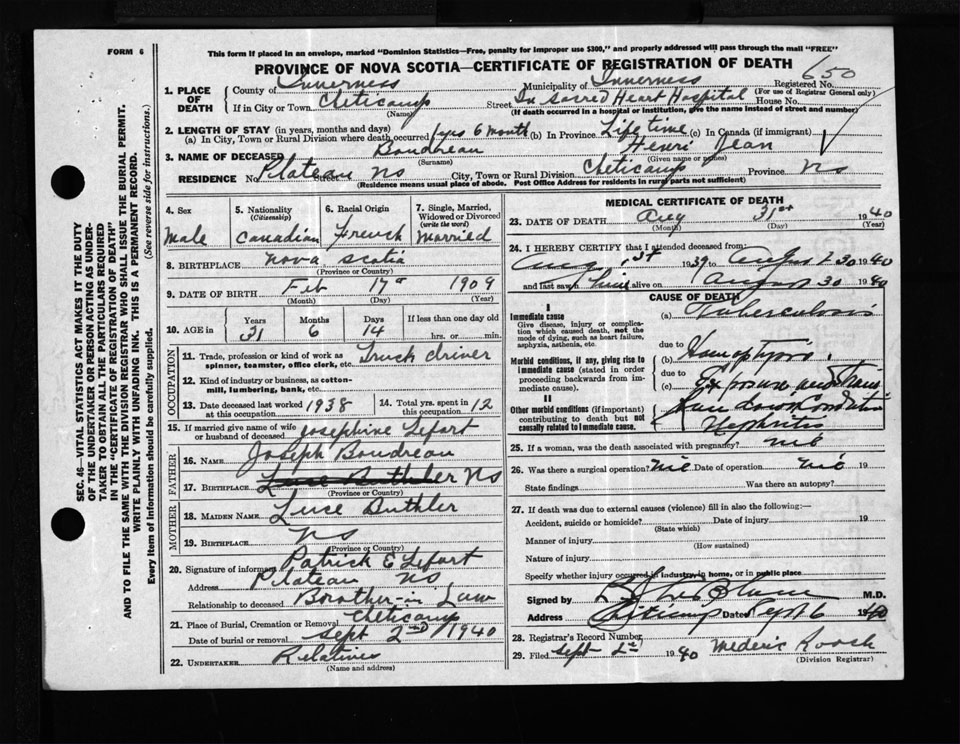 FORM 6
This form if placed in an envelope, marked "Dominion Statistics—Free, penalty for improper use $300," and properly addressed will pass through the mail "FREE"
PROVINCE OF NOVA SCOTIA—CERTIFICATE OF REGISTRATION OF DEATH
650
SEC. 46—VITAL STATISTICS ACT MAKES IT THE DUTY OF THE UNDERTAKER OR PERSON ACTING AS UNDERTAKER TO OBTAIN ALL THE PARTICULARS REQUIRED IN THE "CERTIFICATE OF REGISTRATION OF DEATH" AND TO FILE THE SAME WITH THE DIVISION REGISTRAR WHO SHALL ISSUE THE BURIAL PERMIT.
WRITE PLAINLY WITH UNFADING INK. THIS IS A PERMANENT RECORD.
Every item of information should be carefully supplied. (See reverse side for instructions.)
1. PLACE OF DEATH County of Inverness Municipality of Inverness Registered No.
(For use of Registrar General only)
If in City or Town Cheticamp Street In Sacred Heart Hospital House No.
(Name) (If death occurred in a hospital or institution, give the name instead of street and number)
2. LENGTH OF STAY (in years, months and days)
(a) In City, Town or Rural Division where death occurred 1 yrs 6 month (b) In Province Life time (c) In Canada (if immigrant)
3. NAME OF DECEASED Boudreau Henri Jean
(Surname) (Given name or names)
RESIDENCE No. Plateau NS Street City, Town or Rural Division Cheticamp Province NS
(Residence means usual place of abode. Post Office Address for residents in rural parts not sufficient)
4. Sex Male
5. Nationality (Citizenship) Canadian
6. Racial Origin French
7. Single, Married, Widowed or Divorced (write the word) Married
8. BIRTHPLACE Nova Scotia
(Province or Country)
9. DATE OF BIRTH Feb 17th 1909
(Month) (Day) (Year)
10. AGE in Years Months Days If less than one day old
31 6 14 hrs. or min.
OCCUPATION
11. Trade, profession or kind of work as spinner, teamster, office clerk, etc. Truck driver
12. Kind of industry or business, as cotton-mill, lumbering, bank, etc.
13. Date deceased last worked at this occupation 1938
14. Total yrs. spent in this occupation 12
15. If married give name of wife or husband of deceased Josephine Lefort
FATHER
16. NAME Joseph Boudreau
17. BIRTHPLACE Luce Buthler NS
(Province or Country)
MOTHER
18. MAIDEN NAME Luce Buthler
19. BIRTHPLACE NS
(Province or Country)
20. Signature of informant Patrick E Lefort
Address Plateau NS
Relationship to deceased Brother-in Law
21. Place of Burial, Cremation or Removal Cheticamp
Date of burial or removal Sept 2nd 1940
22. UNDERTAKER Relatives
(Name and address)
MEDICAL CERTIFICATE OF DEATH
23. DATE OF DEATH Aug 31st 1940
(Month) (Day) (Year)
24. I HEREBY CERTIFY that I attended deceased from:
Aug 1st 1939 to August 30 1940
and last saw him alive on August 30 1940
CAUSE OF DEATH
I
Immediate cause (a) Tuberculosis
Give disease, injury or complication which caused death, not the mode of dying, such as heart failure, asphyxia, asthenia, etc.
due to
Morbid conditions, if any, giving rise to immediate cause (stated in order proceeding backwards from immediate cause). (b) Hemoptysis.
due to
(c) Exposure and
II
Other morbid conditions (if important) contributing to death but not causally related to immediate cause. run down Condition
Nephritis
25. If a woman, was the death associated with pregnancy? nil
26. Was there a surgical operation? nil Date of operation nil 19
State findings Was there an autopsy?
27. If death was due to external causes (violence) fill in also the following:—
Accident, suicide or homicide? Date of injury 19
(State which)
Manner of injury
(How sustained)
Nature of injury
Specify whether injury occurred in industry, in home, or in public place
Signed by LeBlanc M.D.
Address Cheticamp Dated Sept 6 1940
28. Registrar's Record Number
29. Filed Sept 2nd 1940 Mederic Roach
(Division Registrar)